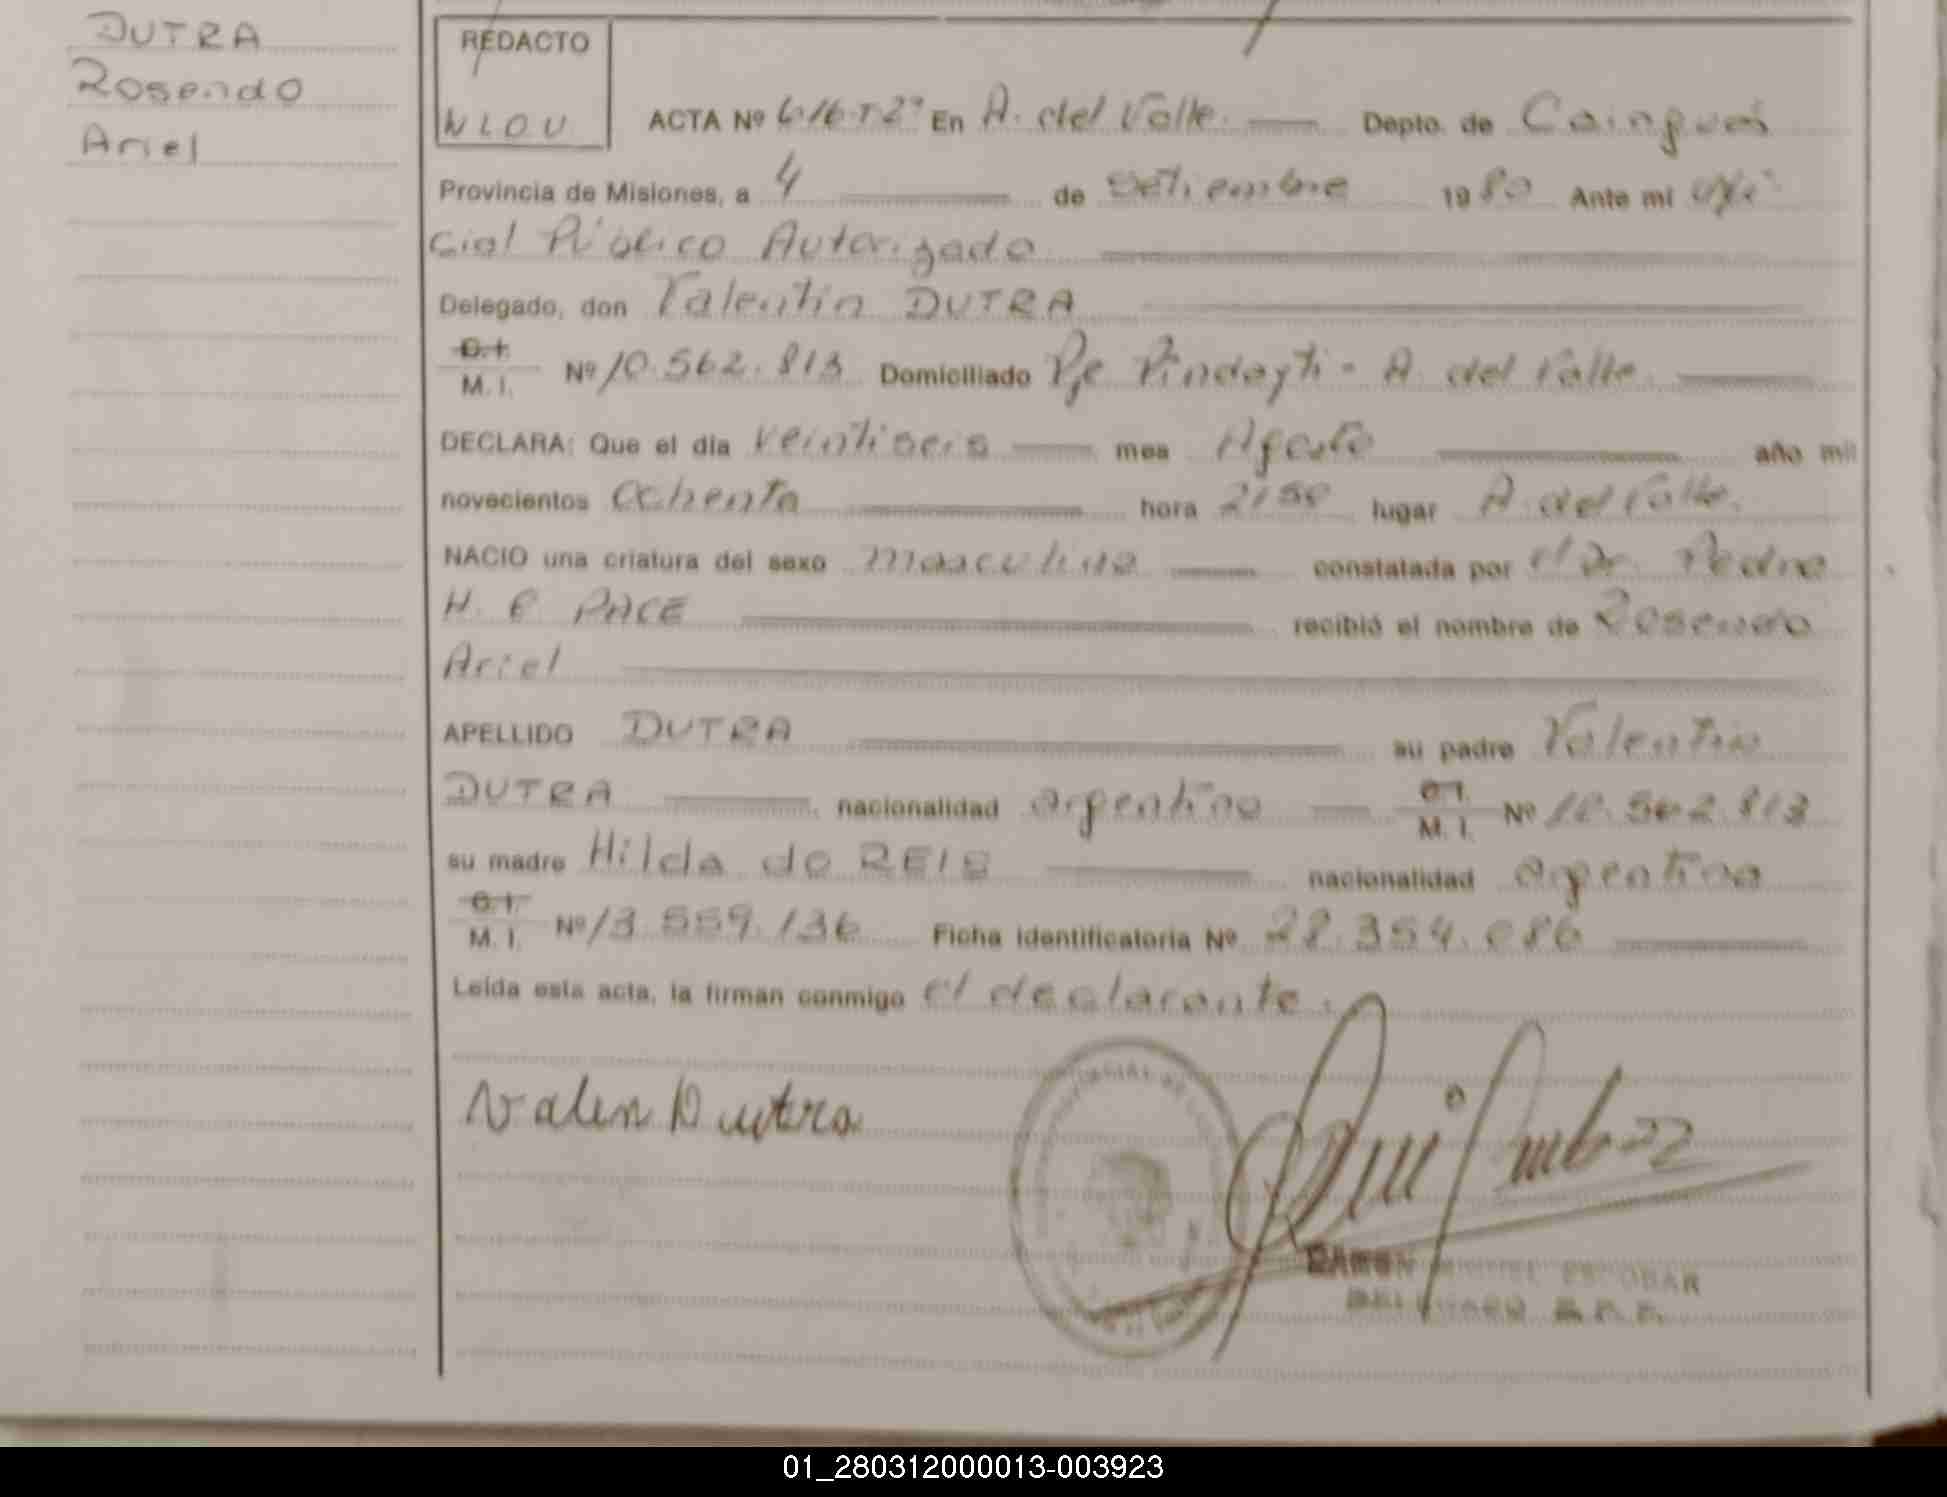 DUTRA
Rosendo
Ariel
REDACTO
NLOU
ACTA Nº 616-T2º En A. del Valle. Depto. de Cainguas
Provincia de Misiones, a 4 de Setiembre 1980 Ante mi Ofi-
cial Público Autorizado
Delegado, don Valentin DUTRA
C.I.
M. I. Nº 10.562.813 Domiciliado Pje Pindayti - A. del Valle
DECLARA: Que el dia veintiseis mes Agosto año mil
novecientos Ochenta hora 2150 lugar A. del Valle.
NACIO una criatura del sexo masculino constatada por el Dr. Pedro
H. C PACE recibió el nombre de Rosendo
Ariel
APELLIDO DUTRA su padre Valentin
DUTRA nacionalidad argentino C.I.
M. I. Nº 10.562.813
su madre Hilda do REIS nacionalidad argentina
C.I.
M. I. Nº 13.559.136 Ficha identificatoria Nº 28.354.086
Leída esta acta, la firman conmigo el declarante.
Valen Dutra
RAMON MIGUEL ESCOBAR
01_280312000013-003923